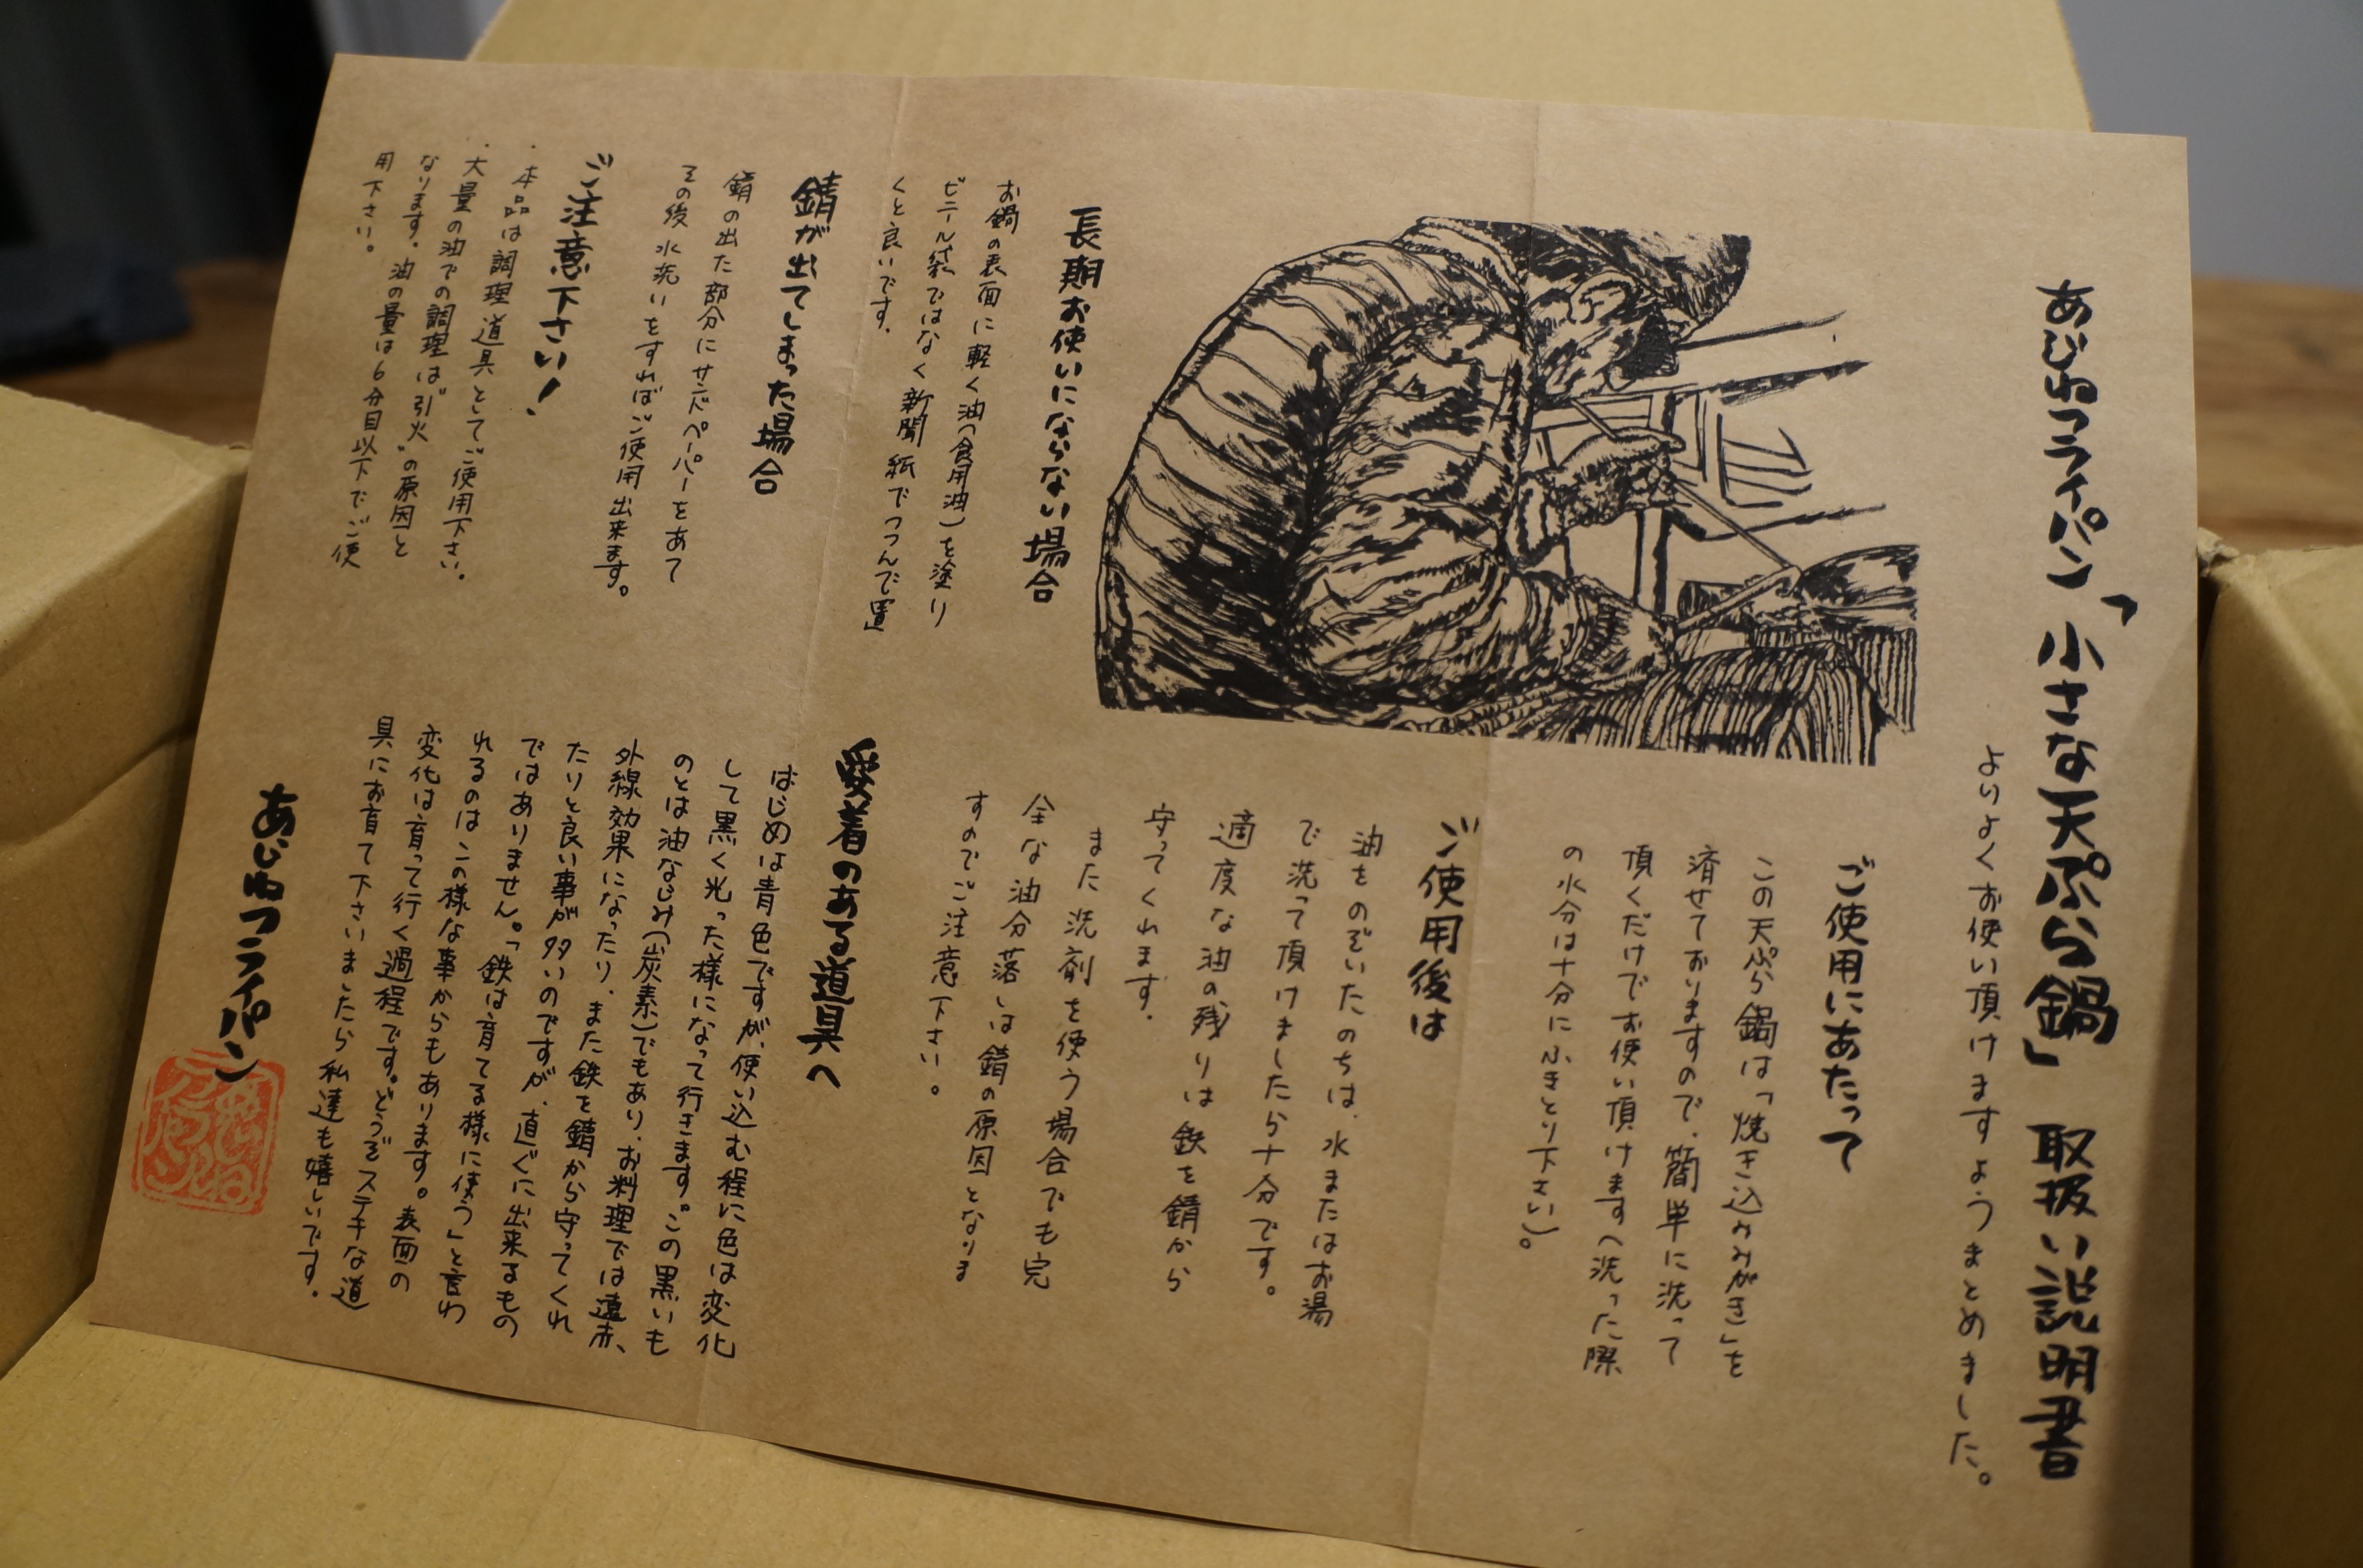 あじねフライパン「小さな天ぷら鍋」 取扱い説明書
よりよくお使い頂けますようまとめました。
ご使用にあたって
この天ぷら鍋は「焼き込みみがき」を
済せておりますので、簡単に洗って
頂くだけでお使い頂けます(洗った際
の水分は十分にふきとり下さい)。
ご使用後は
油をのぞいたのちは、水またはお湯
で洗って頂けましたら十分です。
適度な油の残りは鉄を錆から
守ってくれます。
また洗剤を使う場合でも完
全な油分落しは錆の原因となりま
すのでご注意下さい。
長期お使いにならない場合
お鍋の表面に軽く油(食用油)を塗り
ビニール袋ではなく新聞紙でつつんで置
くと良いです。
錆が出てしまった場合
錆の出た部分にサンドペーパーをあて
その後水洗いをすればご使用出来ます。
ご注意下さい!
・本品は調理道具としてご使用下さい。
・大量の油での調理は〝引火〟の原因と
なります。油の量は6分目以下でご使
用下さい。
愛着のある道具へ
はじめは青色ですが、使い込む程に色は変化
して黒く光った様になって行きます。この黒いも
のとは油なじみ(炭素)でもあり、お料理では遠赤、
外線効果になったり、また鉄を錆から守ってくれ
たりと良い事が多いのですが、直ぐに出来るもの
ではありません。「鉄は育てる様に使う」と言わ
れるのはこの様な事からもあります。表面の
変化は育って行く過程です。どうぞステキな道
具にお育て下さいましたら私達も嬉しいです。
あじねフライパン